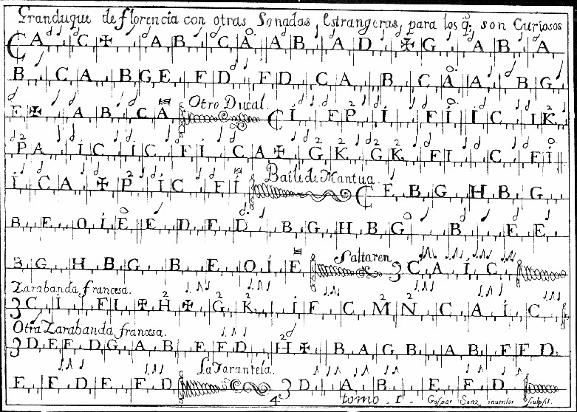 Granduque de florencia con otras Sonadas, estrangeras, para los q̃ son Curiosos
C A C ✠ A B C A A B A D ✠ G A B A
B C A B G E F D F D C A B C A A B G
E ✠ A B C A Otro Ducal C I F P I F I I C I K
P A I C I C F I C A ✠ G K G K F I C F I
I C A ✠ P I C F I Baile de Mantua C E B G H B G
B E O I E E D E D B G H B G B E E
B G H B G B E O I E Saltaren 3 C A I C
Zarabanda francesa.
3 C I F I ✠ H ✠ G K I F C M N C A I C
Otra Zarabanda francesa.
3 D E F D G A B F E D H ✠ B A G B A B F E D
La Tarantela.
E F D E F D 3 D A B E E D
4 tomo I Gaspar Sanz inventor sculpsit